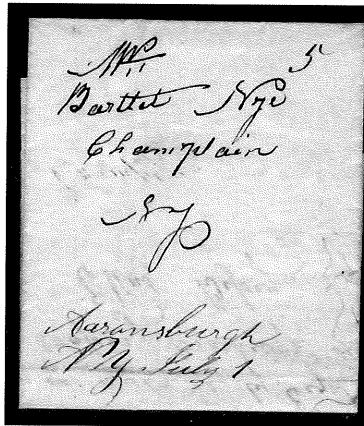 Mr. 5
Bartlet Nye
Champlain
NY
Aaronsburgh
NY July 1